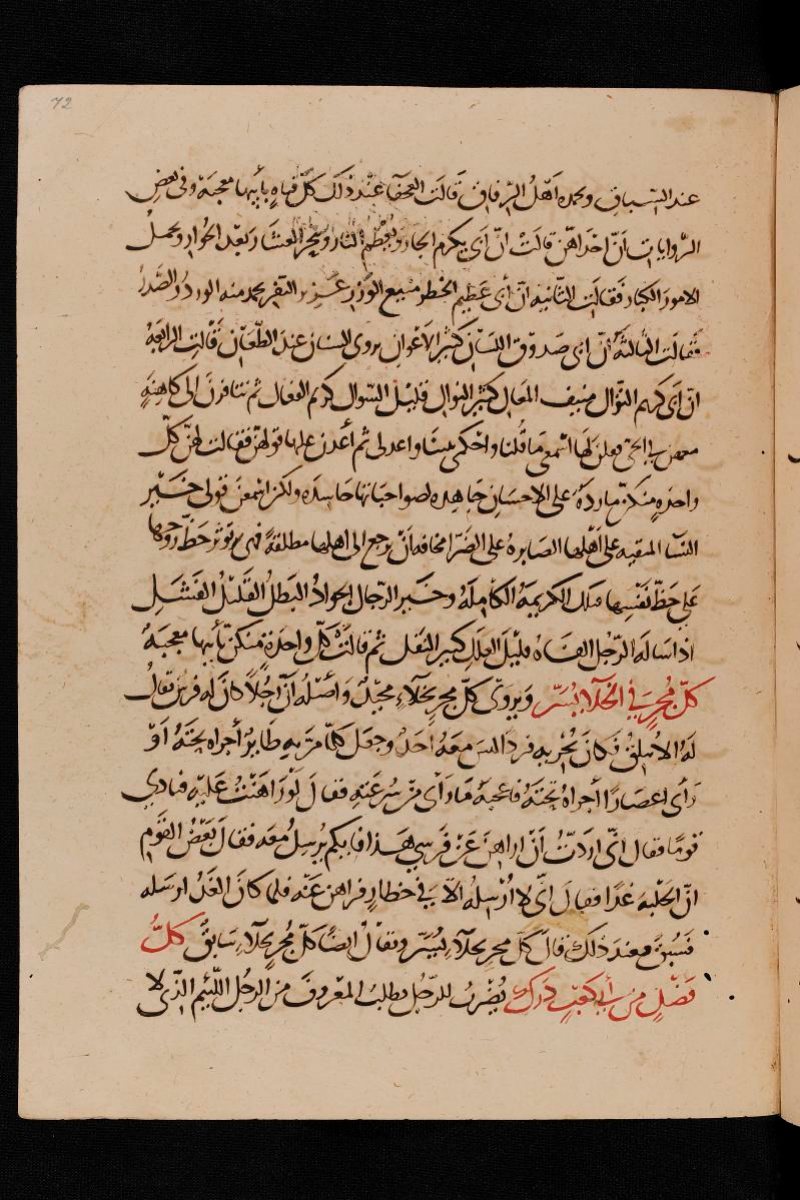 72
عند السباق ويحمده اهل الرفاق قالت العجفا عند ذلك كل فتاه بابيها معجبة وفى بعض
الروايات ان احداهن قالت ان ابى يكرم الجار ويعظم النار وينحر العشار بعد الحوار ويحمل
الامور الكبار فقالت الثانيه ان أبى عظيم الخطر منيع الوزر عزيز النفر يحمد منه الورد والصدر
فقالت الثالثة ان ابى صدوق اللسان كثير الاعوان يروى السنان عند الطعان قالت الرابعة
ان ابى كريم النزال منيف المقال كثير النوال قليل السوال كريم الفعال ثم تنافرن الى كاهنة
معهن فى الحى فقلن لها اسمعى ما قلنا واحكمى بيننا واعدلى ثم أعدن عليها قولهن فقالت لهن كل
واحدة منكن ماردة على الاحسان جاهده لصواحباتها حاسده ولكن اسمعن قولى خير
النسآ المبقيه على اهلها الصابرة على الضرا مخافه ان ترجع الى اهلها مطلقة فهى توثر حظ زوجها
على حظ نفسها فتلك الكريمة الكاملة وخير الرجال الجواد البطل القليل الفشل
اذا ساله الرجل الفاه قليل العلل كثير النفل ثم قالت كل واحدة منكن بأبيها معجبة
كل مجر فى الخلآ يسر ويروى كل مجر بخلاء مجيد وأصله ان رجلا كان له فرس يقال
له الابيلق فكان يجريه فردا ليس معه احد وجعل كلما مر به طاير أجراه تحته او
رأى اعصارا أجراه تحته فاعجبه ما رأى من سرعته فقال لو راهنت عليه فنادى
قوما فقال انى اردت أن اراهن عن فرسي هذا فايكم يرسل معه فقال بعض القوم
ان الحلبة غدا فقال انى لا أرسله الا فى خطار فراهن عنه فلما كان الغد ارسله
فسبق فعند ذلك قال كل مجر بخلآء يسر ويقال ايضا كل مجر بخلآء سابق كل
فضل من أبى كعب درك يضرب للرجل يطلب المعروف من الرجل اللئيم الذى لا